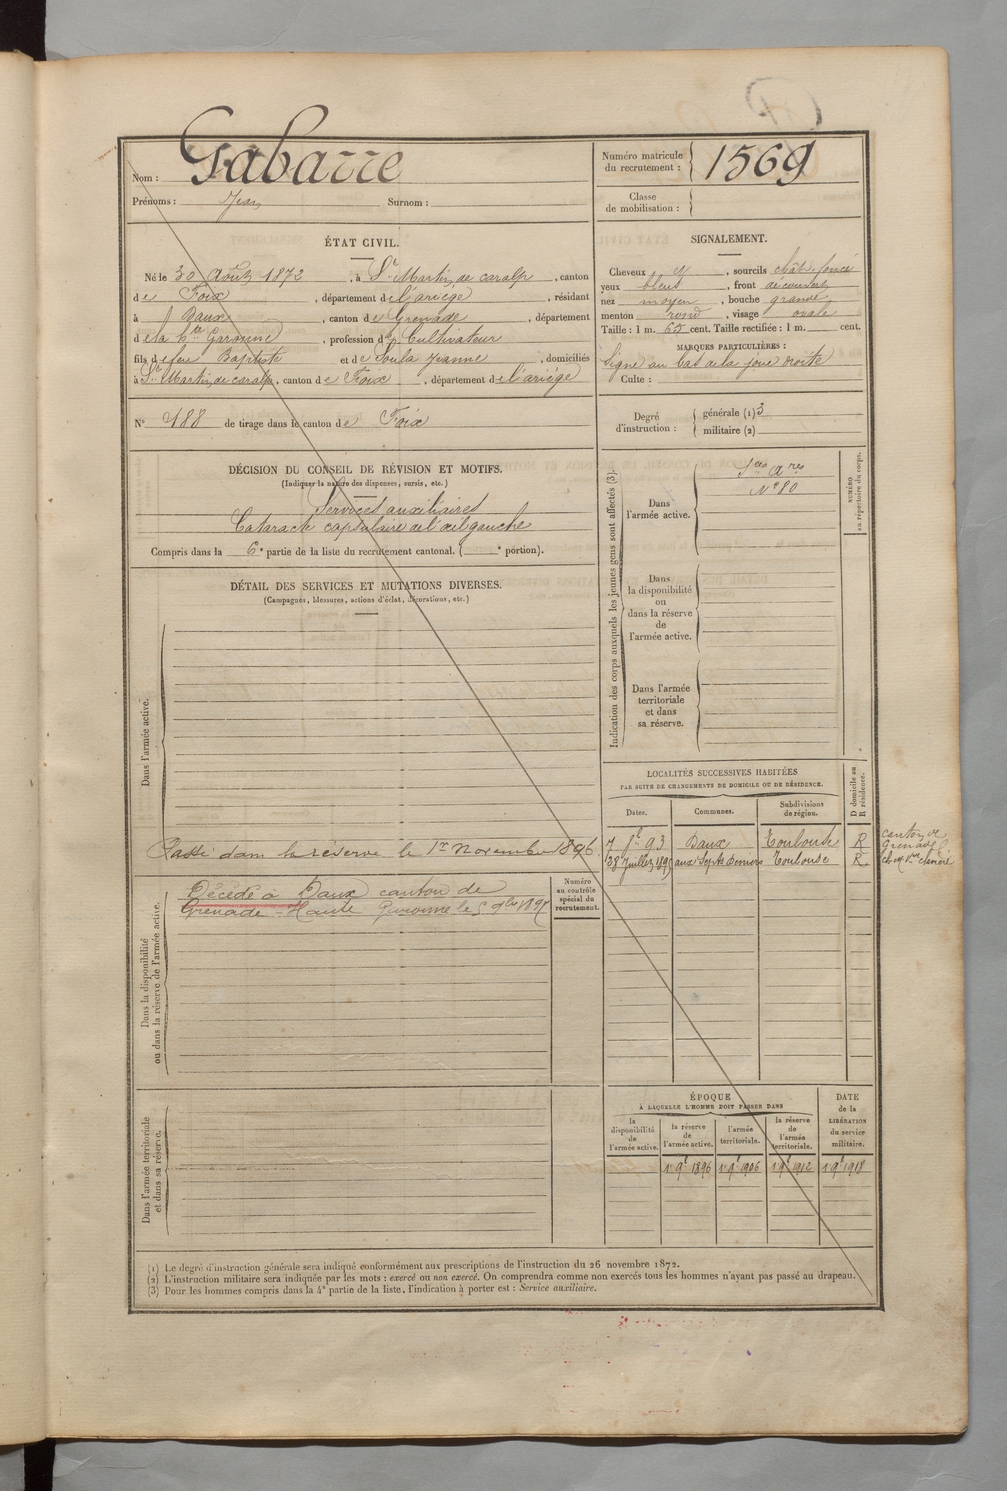 Nom : Gabarre
Prénoms : Jean Surnom :
Numéro matricule du recrutement : 1569
Classe de mobilisation :
ÉTAT CIVIL.
Né le 30 Août 1872, à St Martin de caralp, canton
de Foix, département de l'ariège, résidant
à Daux, canton de Grenade, département
de la hte Garonne, profession de Cultivateur
fils de feu Baptiste et de Soula Jeanne, domiciliés
à St Martin de caralp, canton de Foix, département de l'ariége
N° 188 de tirage dans le canton de Foix
SIGNALEMENT.
Cheveux y, sourcils chât. foncé
yeux bleus, front découvert
nez moyen, bouche grande
menton rond, visage ovale
Taille : 1 m. 65 cent. Taille rectifiée : 1 m. cent.
MARQUES PARTICULIÈRES :
Signe au bas de la joue droite
Culte :
Degré d'instruction : générale (1) 3
militaire (2)
DÉCISION DU CONSEIL DE RÉVISION ET MOTIFS.
(Indiquer la nature des dispenses, sursis, etc.)
Services auxiliaires
Cataracte capsulaire de l'œil gauche
Compris dans la 6e partie de la liste du recrutement cantonal. ( e portion).
DÉTAIL DES SERVICES ET MUTATIONS DIVERSES.
(Campagnes, blessures, actions d'éclat, décorations, etc.)
Dans l'armée active.
Passé dans la réserve le 1er Novembre 1896.
Dans la disponibilité
ou dans la réserve de l'armée active.
Décédé à Daux canton de
Grenade - Haute Garonne le 5 9bre 1897
Numéro
au contrôle
spécial du
recrutement.
Dans l'armée territoriale
et dans sa réserve.
Indication des corps auxquels les jeunes gens sont affectés (3).
NUMÉRO
au répertoire du corps.
Dans
l'armée active.
Sces Ares
N° 80
Dans
la disponibilité
ou
dans la réserve
de
l'armée active.
Dans l'armée
territoriale
et dans
sa réserve.
LOCALITÉS SUCCESSIVES HABITÉES
PAR SUITE DE CHANGEMENTS DE DOMICILE OU DE RÉSIDENCE.
D domicile ou
R résidence.
Dates. Communes. Subdivisions de région.
7 8e 93 Daux Toulouse R canton de Grenade
28 Juillet 1895 aux Sept Deniers Toulouse R
ÉPOQUE
À LAQUELLE L'HOMME DOIT PASSER DANS
la
disponibilité
de
l'armée active.
la réserve
de
l'armée active.
l'armée
territoriale.
la réserve
de
l'armée
territoriale.
DATE
de la
LIBÉRATION
du service
militaire.
1 9e 1896 1 9e 1906 1 9e 1912 1 9e 1918
(1) Le degré d'instruction générale sera indiqué conformément aux prescriptions de l'instruction du 26 novembre 1872.
(2) L'instruction militaire sera indiquée par les mots : exercé ou non exercé. On comprendra comme non exercés tous les hommes n'ayant pas passé au drapeau.
(3) Pour les hommes compris dans la 4e partie de la liste, l'indication à porter est : Service auxiliaire.